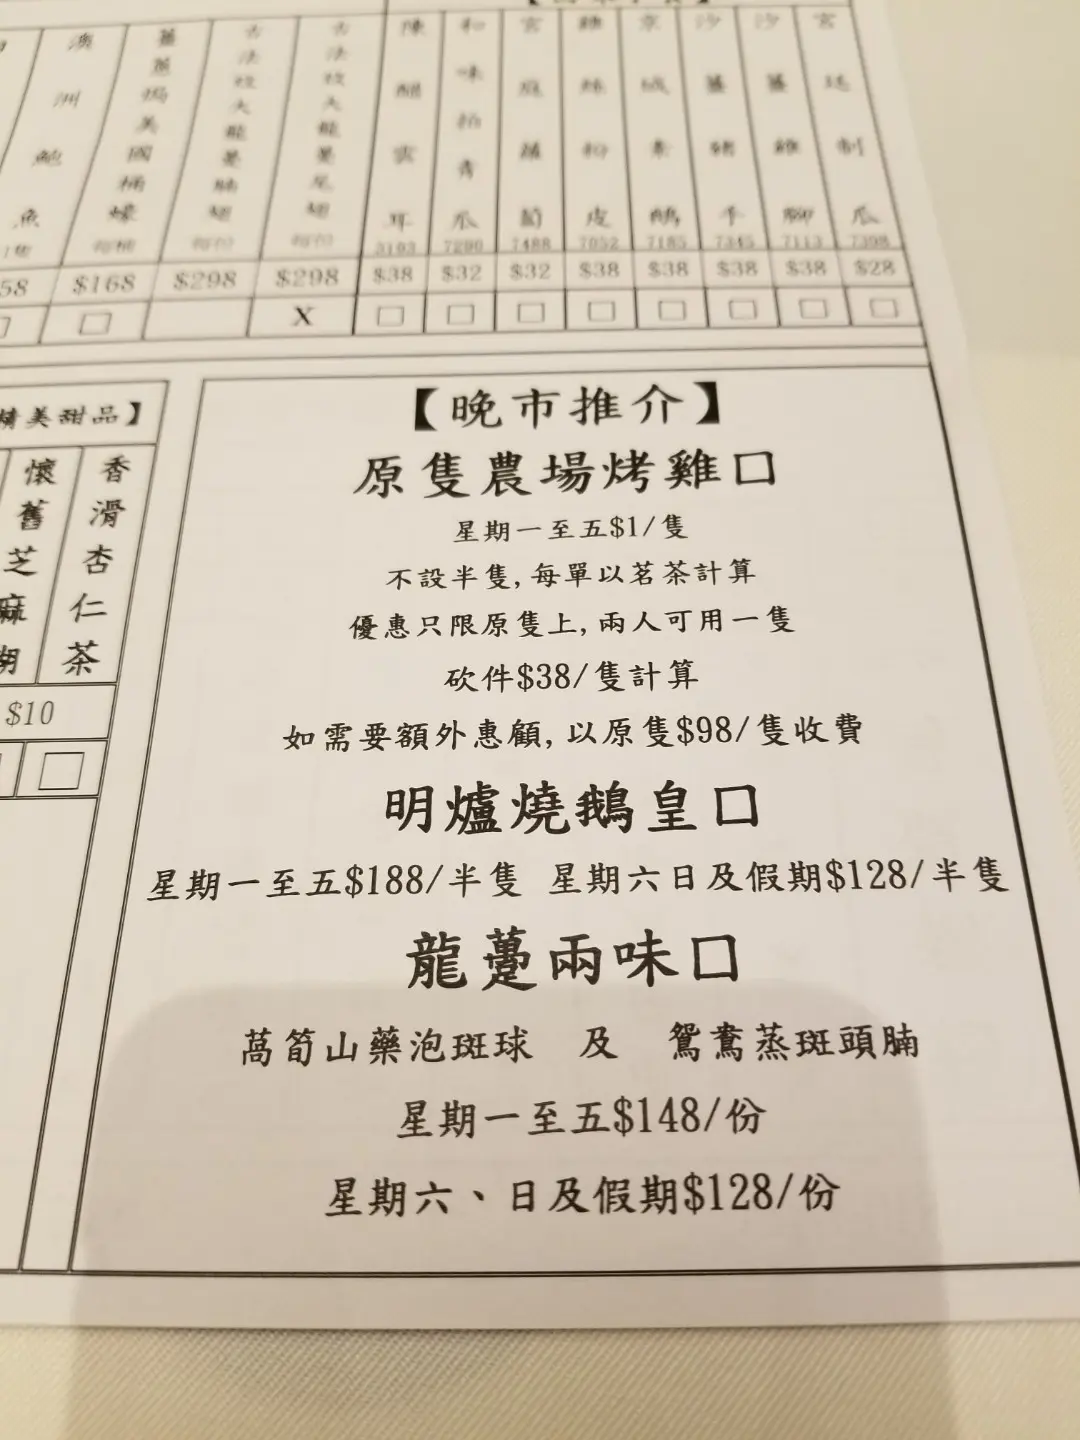 澳洲鮑魚
薑蔥焗美國桶蠔
陳醋雲耳
和味拍青瓜
宮庭蘿蔔
雞絲粉皮
京城素鵝
沙薑豬手
沙薑雞腳
宮廷制瓜
3103 7290 7488 7052 7185 7345 7113 7398
58 $168 $298 $298 $38 $32 $32 $38 $38 $38 $38 $28
X □ □ □ □ □ □ □ □
精美甜品】
懷舊芝麻糊
香滑杏仁茶
$10
【晚市推介】
原隻農場烤雞□
星期一至五$1/隻
不設半隻,每單以茗茶計算
優惠只限原隻上,兩人可用一隻
砍件$38/隻計算
如需要額外惠顧,以原隻$98/隻收費
明爐燒鵝皇□
星期一至五$188/半隻 星期六日及假期$128/半隻
龍躉兩味□
萵筍山藥泡斑球 及 鴛鴦蒸斑頭腩
星期一至五$148/份
星期六、日及假期$128/份